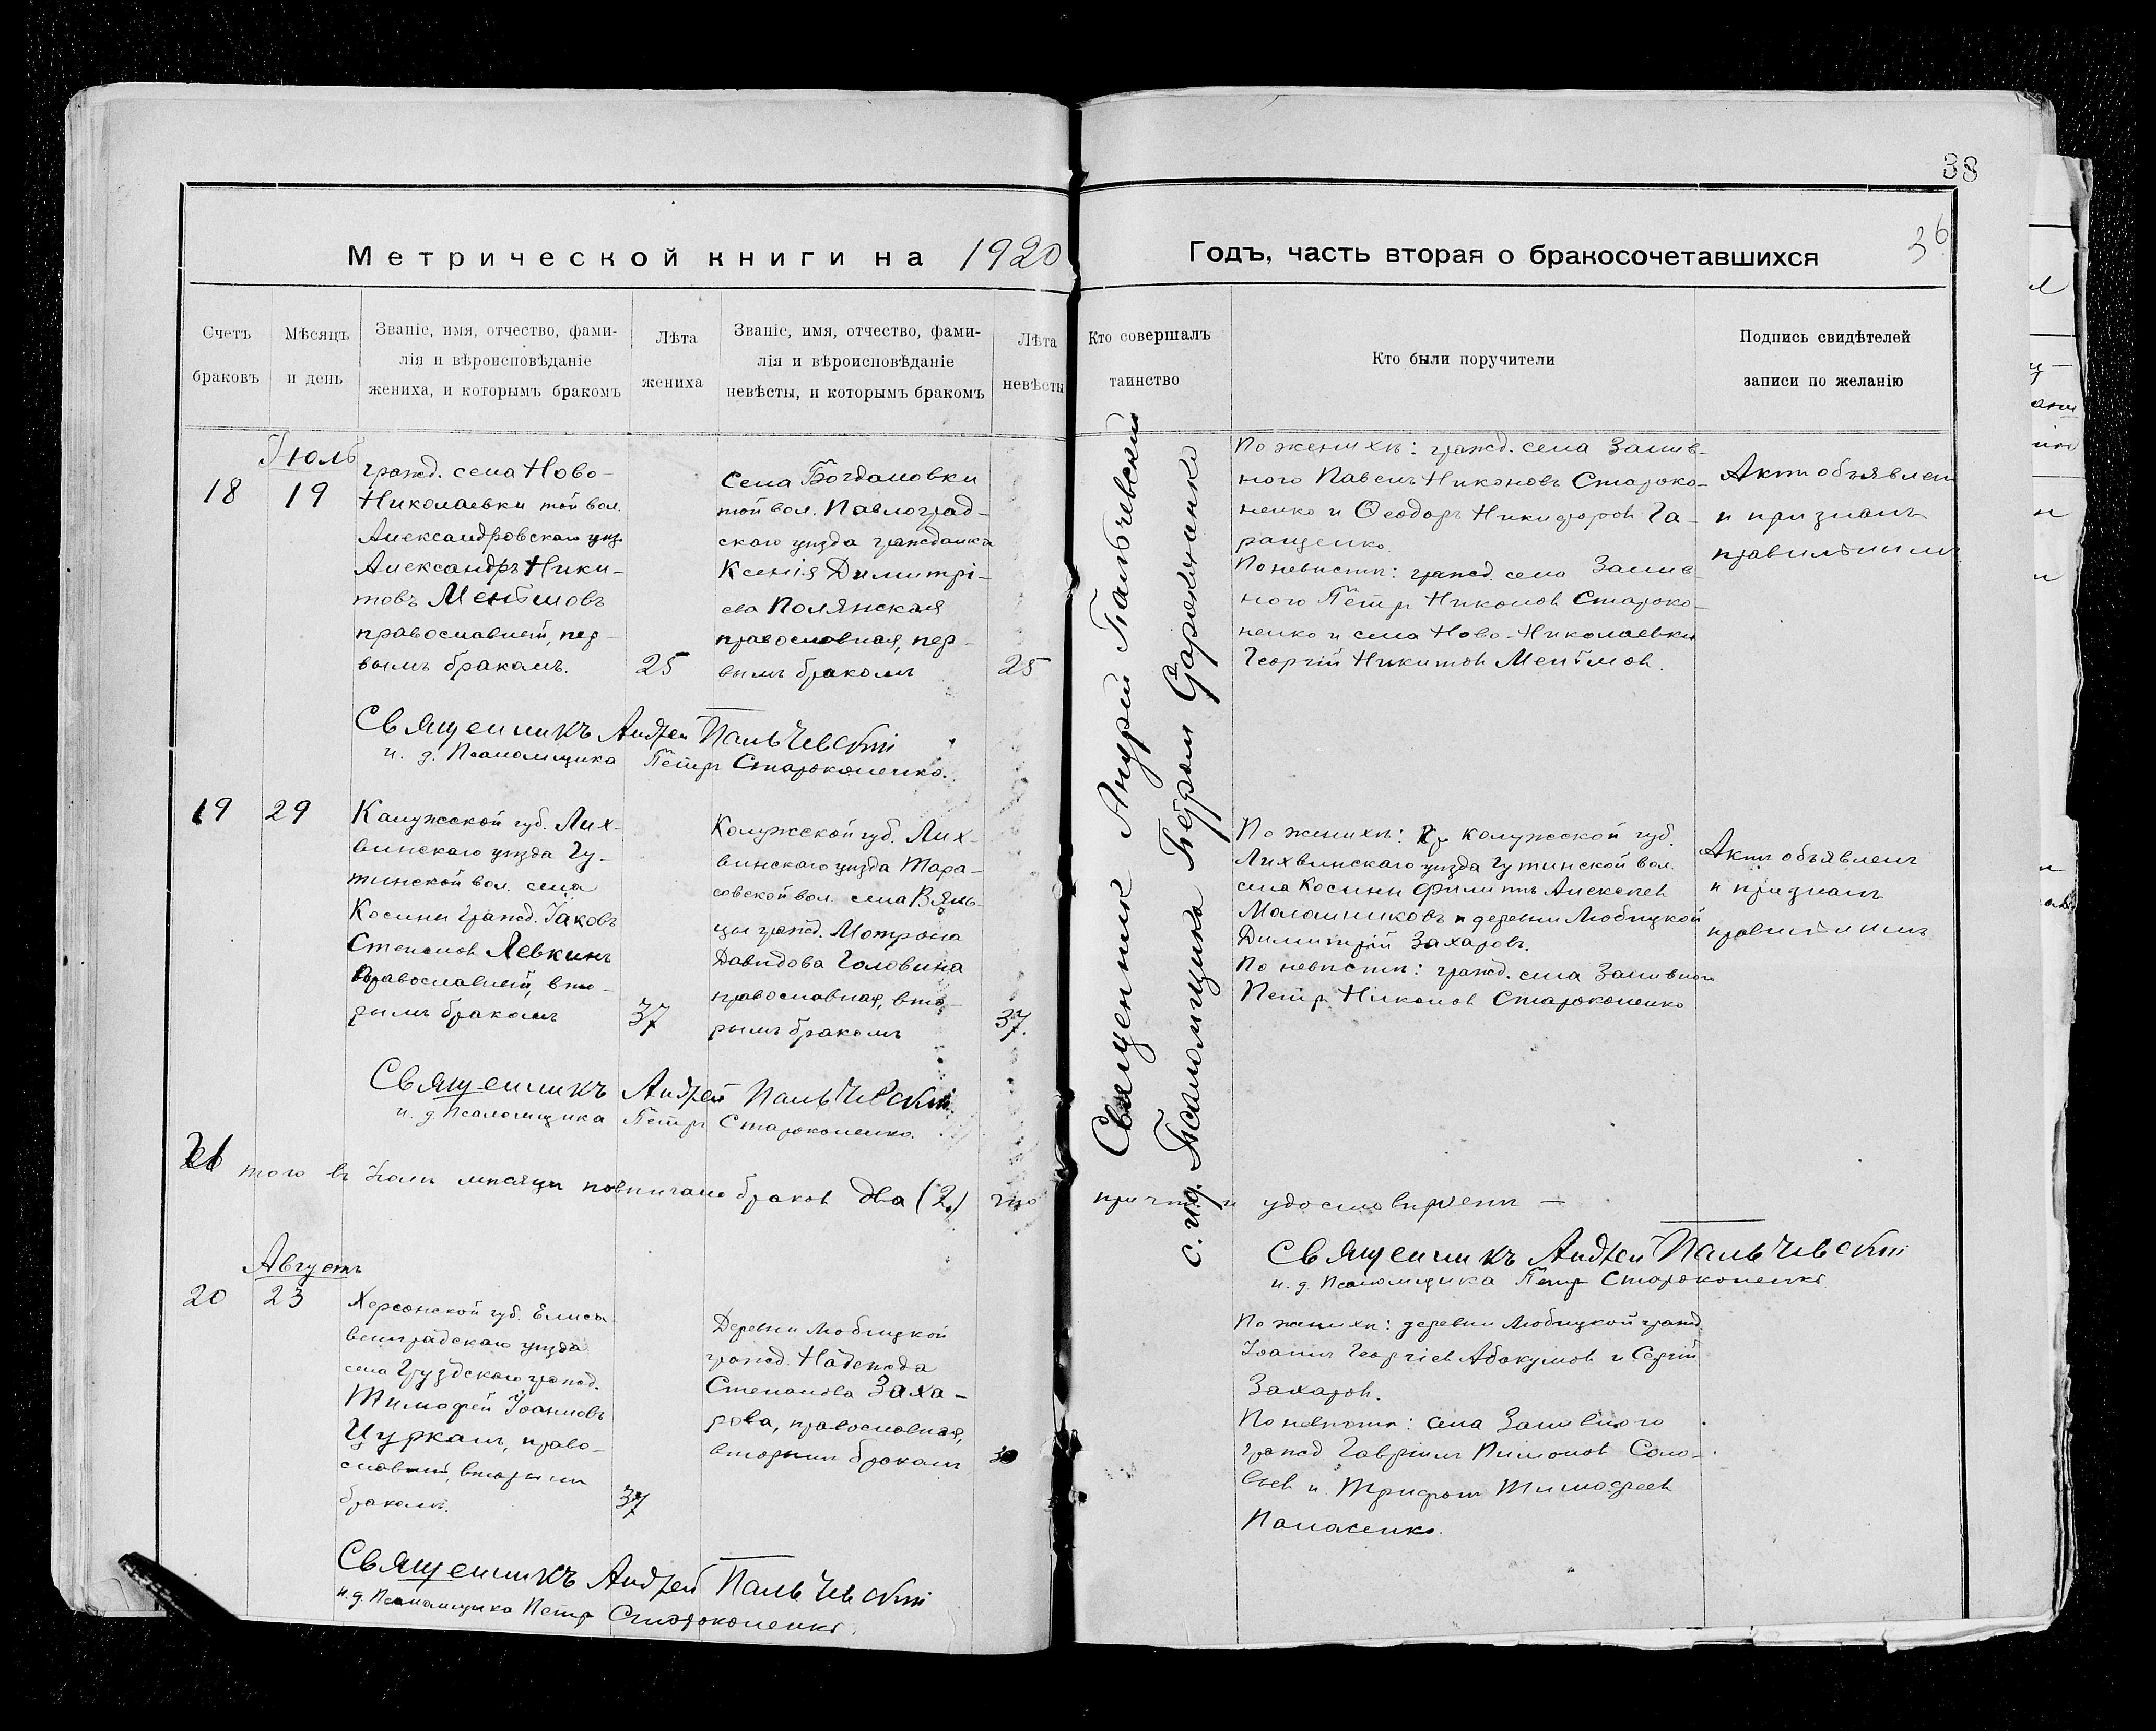 38
36
Метрической книги на 1920
Годъ, часть вторая о бракосочетавшихся
Счетъ браковъ
Мѣсяцъ и день
Званіе, имя, отчество, фами-
лія и вѣроисповѣданіе
жениха, и которымъ бракомъ
Лѣта жениха
Званіе, имя, отчество, фами-
лія и вѣроисповѣданіе
невѣсты, и которымъ бракомъ
Лѣта невѣсты
Кто совершалъ таинство
Кто были поручители
Подпись свидѣтелей
записи по желанію
Іюль
18
19
гражд. села Ново-
Николаевки той вол.
Александровскаго уѣз.
Александръ Ники-
товъ Меньшовъ
православный, пер-
вымъ бракомъ.
25
Села Богдановки
той вол. Павлоград-
скаго уѣзда гражданка
Ксенія Димитрі-
ева Полянская
православная, пер-
вымъ бракомъ
25
Священник Андрей Пальчевский
с. и.д. Псаломщика Петром Староконенко
По женихѣ: гражд. села Залив-
ного Павелъ Никоновъ Староко-
ненко и Ѳеодоръ Никифоров Га-
ращенко.
По невѣстѣ: гражд. села Залив-
ного Петръ Никонов Староко-
ненко и села Ново-Николаевки
Георгій Никитов Меньшов.
Актъ объявлен
и признанъ
правильнымъ
Священникъ Андрей Пальчевскій
и. д. Псаломщика Петръ Староконенко.
19
29
Калужской губ. Лих-
винскаго уѣзда Гу-
тинской вол. села
Косини гражд. Іаковъ
Степанов Левкинъ
православный, вто-
рымъ бракомъ
37
Калужской губ. Лих-
винскаго уѣзда Тара-
совской вол. села Вяль-
цы гражд. Матрона
Давидова Головина
православная, вто-
рымъ бракомъ
37.
По женихѣ: Калужской губ.
Лихвинскаго уѣзда Гутинской вол.
села Косини Филиппъ Алексеев
и деревни Любицкой
Димитрій Захаровъ.
По невѣстѣ: гражд. села Заливного
Петръ Никонов Староконенко
Актъ объявленъ
и признанъ
правильнымъ
Священникъ Андрей Пальчевскій
и. д. Псаломщика Петръ Староконенко.
того въ Іюлѣ мѣсяцѣ повѣнчано браков два (2) что причтъ и удостовѣряетъ —
Священникъ Андрей Пальчевскій
и. д. Псаломщика Петръ Староконенко
Августъ
20
23
Херсонской губ. Елиса-
ветградскаго уѣзда
села Грузскаго гражд.
Тимофей Іоанновъ
Цурканъ, право-
славный, вторымъ
бракомъ.
37
Деревни Любицкой
гражд. Надежда
Степанова Заха-
рова, православная,
вторымъ бракомъ
По женихѣ: деревни Любицкой гражд.
Іоаннъ Георгіев Абакумов и Сергій
Захаров.
По невѣстѣ: села Заливного
гражд. Гавріилъ Пимонов Соло-
вьев и Трифонъ Тимофеев
Панасенко.
Священникъ Андрей Пальчевскій
и. д. Псаломщика Петръ Староконенко.